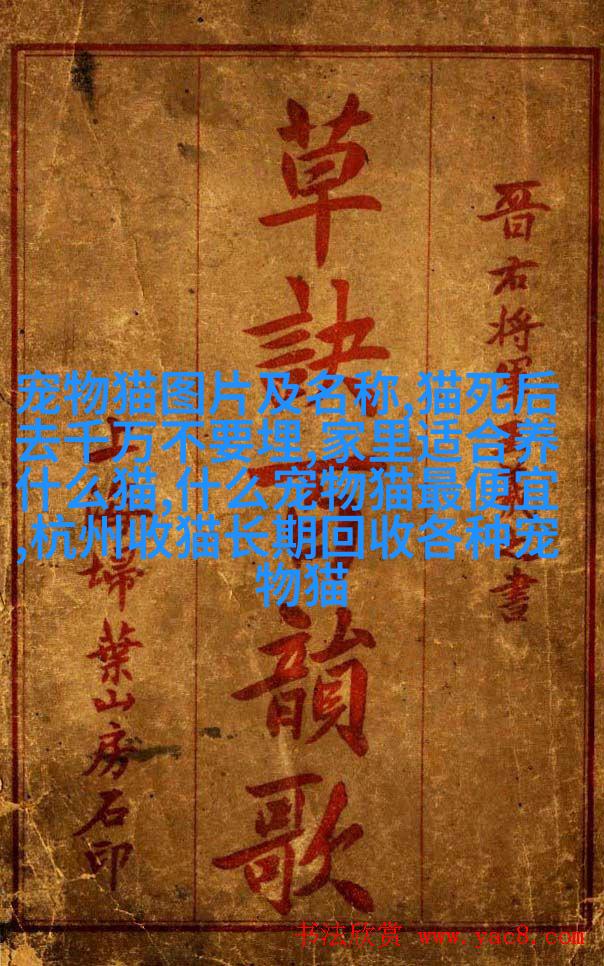 晋右将軍之書
草訣韻歌
掃葉山房石印
宠物猫图片及名称,猫死后
去千万不要埋,家里适合养
什么猫,什么宠物猫最便宜
,杭州收猫长期回收各种宠
物猫
书法欣赏 www.yac8.com